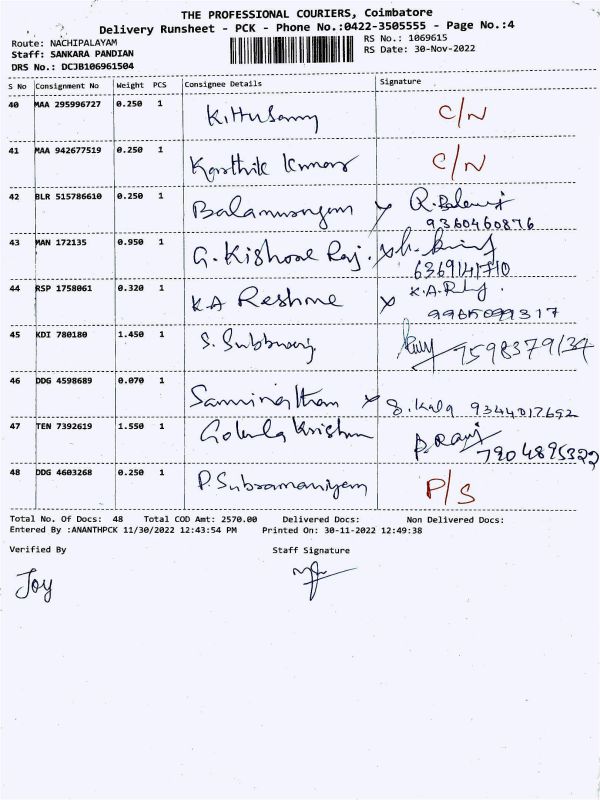 THE PROFESSIONAL COURIERS, Coimbatore
Delivery Runsheet - PCK - Phone No.:0422-3505555 - Page No.:4
Route: NACHIPALAYAM RS No.: 1069615
Staff: SANKARA PANDIAN RS Date: 30-Nov-2022
DRS No.: DCJB106961504
S No Consignment No Weight PCS Consignee Details Signature
40 MAA 295996727 0.250 1 Kittusamy C/N
41 MAA 942677519 0.250 1 Karthik Kumar C/N
42 BLR 515786610 0.250 1 Balamurugan x
9360460876
43 MAN 172135 0.950 1 G. Kishore Raj. x
44 RSP 1758061 0.320 1 K A Reshme x
45 KDI 780180 1.450 1 S. Subburaj
9598379134
46 DDG 4598689 0.070 1 Saminathan x S. Kala 9344017692
47 TEN 7392619 1.550 1 Gokula Krishnan
7904895322
48 DDG 4603268 0.250 1 P. Subramaniyam P/S
Total No. Of Docs: 48 Total COD Amt: 2570.00 Delivered Docs: Non Delivered Docs:
Entered By :ANANTHPCK 11/30/2022 12:43:54 PM Printed On: 30-11-2022 12:49:38
Verified By Staff Signature
Joy